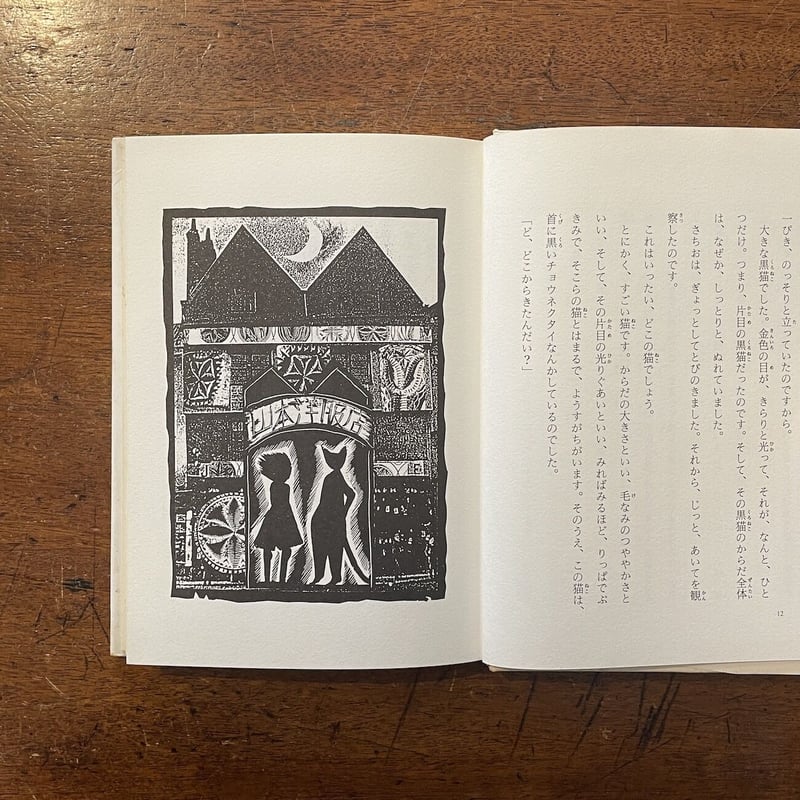 一ぴき、のっそりと立っていたのですから。
大きな黒猫でした。金色の目が、きらりと光って、それが、なんと、ひと
つだけ。つまり、片目の黒猫だったのです。そして、その黒猫のからだ全体
は、なぜか、しっとりと、ぬれていました。
さちおは、ぎょっとしてとびのきました。それから、じっと、あいてを観
察したのです。
これはいったい、どこの猫でしょう。
とにかく、すごい猫です。からだの大きさといい、毛なみのつややかさと
いい、そして、その片目の光りぐあいといい、みればみるほど、りっぱでぶ
きみで、そこらの猫とはまるで、ようすがちがいます。そのうえ、この猫は、
首に黒いチョウネクタイなんかしているのでした。
「ど、どこからきたんだい？」
12
本洋服店